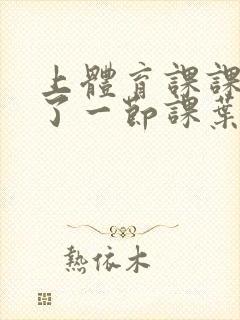 上體育課課
了一節課葉
熱依木